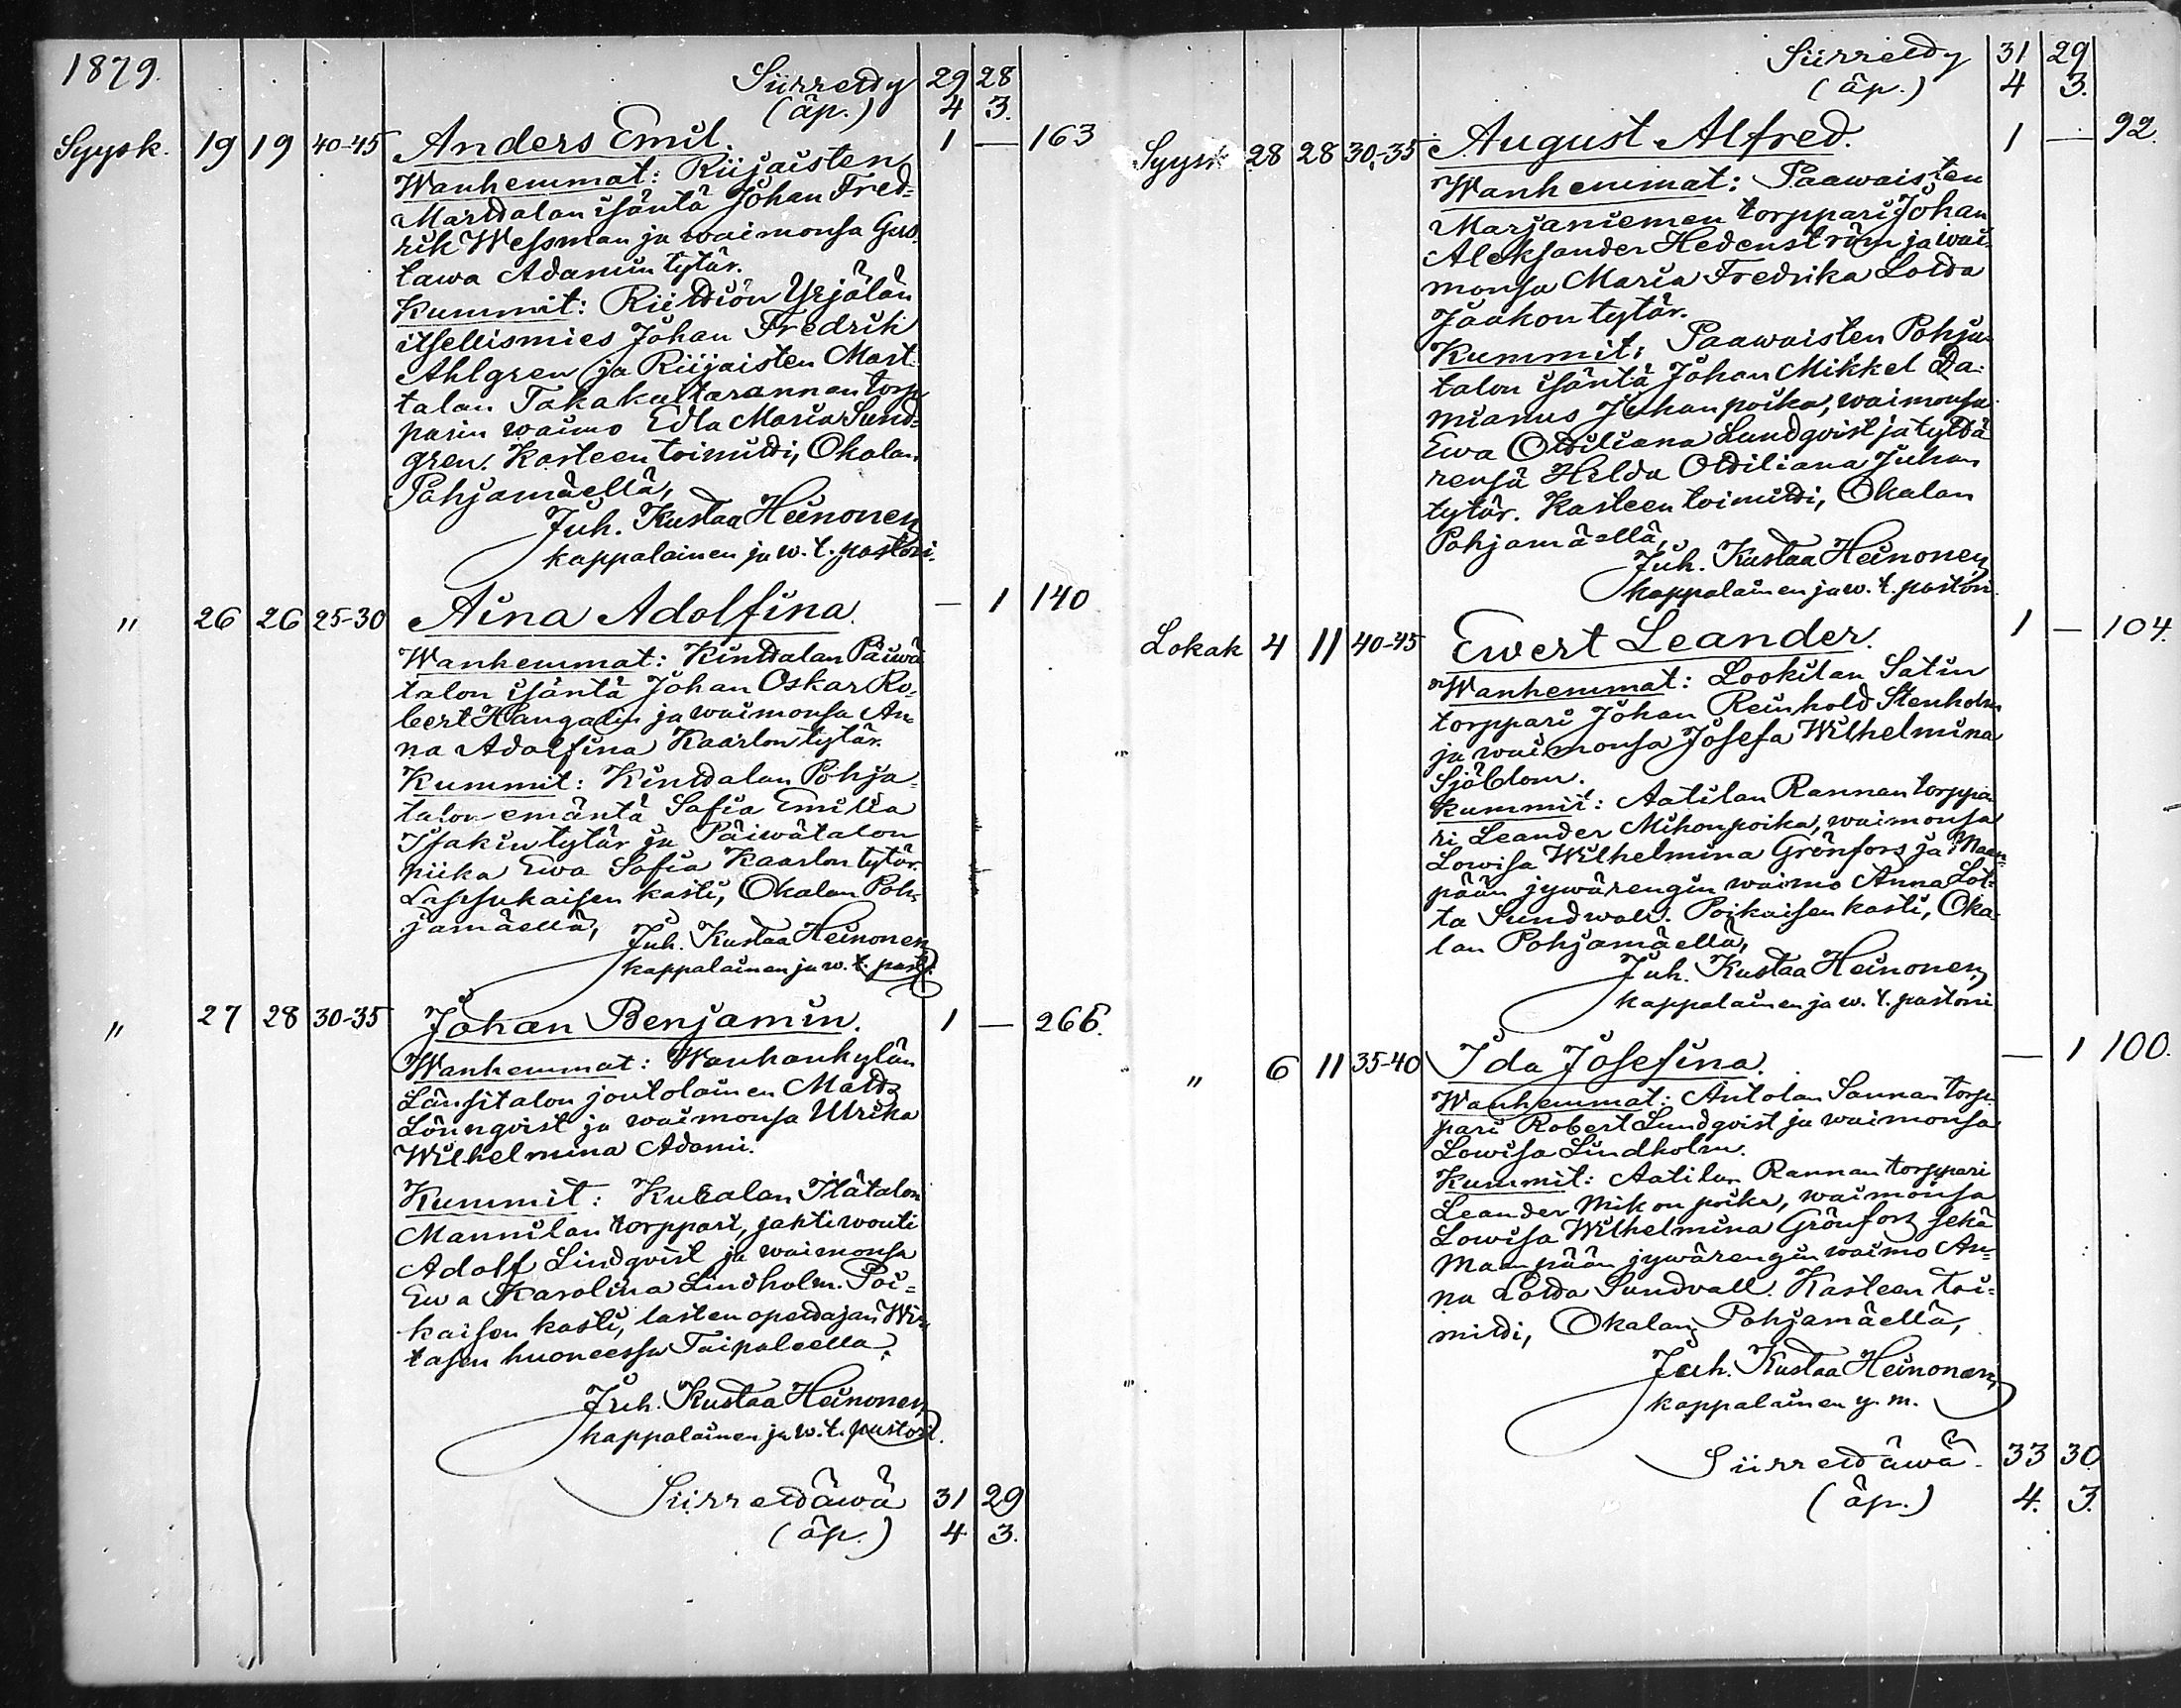 1879.
Siirretty 29 28
(äp.) 4 3.
Syysk. 19 19 40-45 Anders Emil. 1 — 163
Wanhemmat: Riijaisten
Marttalan isäntä Johan Fred=
rik Wessman ja waimonsa Gus=
tawa Adamintytär.
Kummit: Riittiön Yrjölän
itsellismies Johan Fredrik
Ahlgren ja Riijaisten Mart=
talan Takakultarannan torp=
parin waimo Edla Maria Sund=
gren. Kasteen toimitti, Okalan
Pohjamäellä,
Juh. Kustaa Heinonen
kappalainen ja w. t. pastori.
" 26 26 25-30 Aina Adolfina. — 1 140
Wanhemmat: Kinttalan Päiwä
talon isäntä Johan Oskar Ro=
bert Hangalin ja waimonsa An=
na Adolfina Kaarlontytär.
Kummit: Kinttalan Pohja=
talon emäntä Sofia Emilia
Isakintytär ja Päiwätalon
piika Ewa Sofia Kaarlontytär.
Lapsukaisen kasti, Okalan Poh=
jamäellä,
Juh. Kustaa Heinonen
kappalainen ja w. t. past.
" 27 28 30-35 Johan Benjamin. 1 — 266.
Wanhemmat: Wanhankylän
Länsitalon joutolainen Matts
Lönnqvist ja waimonsa Ulrika
Wilhelmina Adami.
Kummit: Kukalan Itätalon
Mannilan torppari, jahtiwouti
Adolf Lindqvist ja waimonsa
Ewa Karolina Lindholm. Poi=
kaisen kasti, lasten opettajan Wir=
tasen huoneessa Taipaleella,
Juh. Kustaa Heinonen
kappalainen ja w. t. pastori.
Siirrettäwä 31 29
(äp.) 4 3.
Siirretty 31 29
(äp.) 4 3.
Syysk 28 28 30-35 August Alfred. 1 — 92.
Wanhemmat: Paawaisten
Marjaniemen torppari Johan
Aleksander Hedenström ja wai=
monsa Maria Fredrika Lotta
Jaakontytär.
Kummit: Paawaisten Pohja=
talon isäntä Johan Mikkel Da=
mianus Juhanpoika, waimonsa
Ewa Ottiliana Lundqvist ja tyttä
rensä Hilda Ottiliana Juhan
tytär. Kasteen toimitti, Okalan
Pohjamäellä,
Juh. Kustaa Heinonen,
kappalainen ja w. t. pastori.
Lokak 4 11 40-45 Ewert Leander. 1 — 104.
Wanhemmat: Lookilan Satin
torppari Johan Reinhold Stenholm
ja waimonsa Josefa Wilhelmina
Sjöblom.
Kummit: Aatilan Rannan torppa
ri Leander Mikonpoika, waimonsa
Lowisa Wilhelmina Grönfors ja Maan=
pään jywärengin waimo Anna Lot=
ta Sundwall. Poikaisen kasti, Oka=
lan Pohjamäellä,
Juh. Kustaa Heinonen,
kappalainen ja w. t. pastori
" 6 11 35-40 Ida Josefina. — 1 100.
Wanhemmat: Antolan Sannan torp=
pari Robert Lundqvist ja waimonsa
Lowisa Lindholm.
Kummit: Aatilan Rannan torppari
Leander Mikonpoika, waimonsa
Lowisa Wilhelmina Grönfors sekä
Maanpään jywärengin waimo An=
na Lotta Sundvall. Kasteen toi=
mitti, Okalan Pohjamäellä,
Juh. Kustaa Heinonen,
kappalainen y. m.
Siirrettäwä 33 30
(äp.) 4. 3.